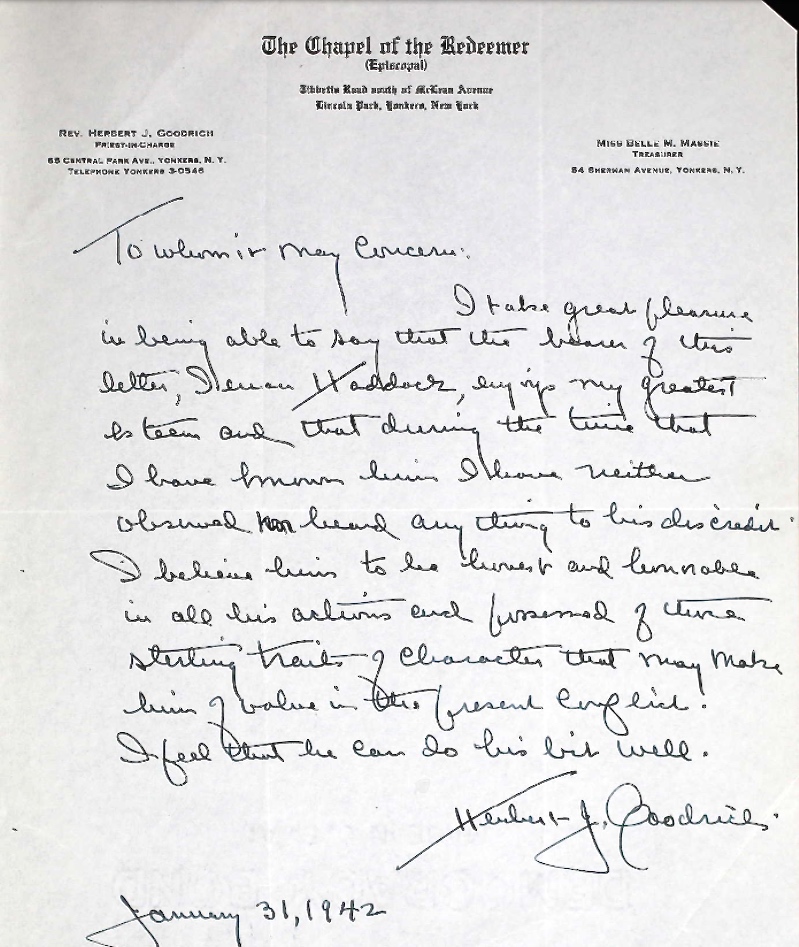 The Chapel of the Redeemer
(Episcopal)
Tibbetts Road south of McLean Avenue
Lincoln Park, Yonkers, New York
REV. HERBERT J. GOODRICH
PRIEST-IN-CHARGE
68 CENTRAL PARK AVE., YONKERS, N. Y.
TELEPHONE YONKERS 3-0546
MISS BELLE M. MASSIE
TREASURER
54 SHERMAN AVENUE, YONKERS, N. Y.
To whom it may Concern:
I take great pleasure
in being able to say that the bearer of this
letter, Haddock, enjoys my greatest
Esteem and that during the time that
I have known him I have neither
observed nor heard any thing to his discredit.
I believe him to be honest and honorable
in all his actions and possessed of those
sterling traits of Character that may make
him of value in the present Conflict.
I feel that he can do his bit well.
Herbert J. Goodrich.
January 31, 1942